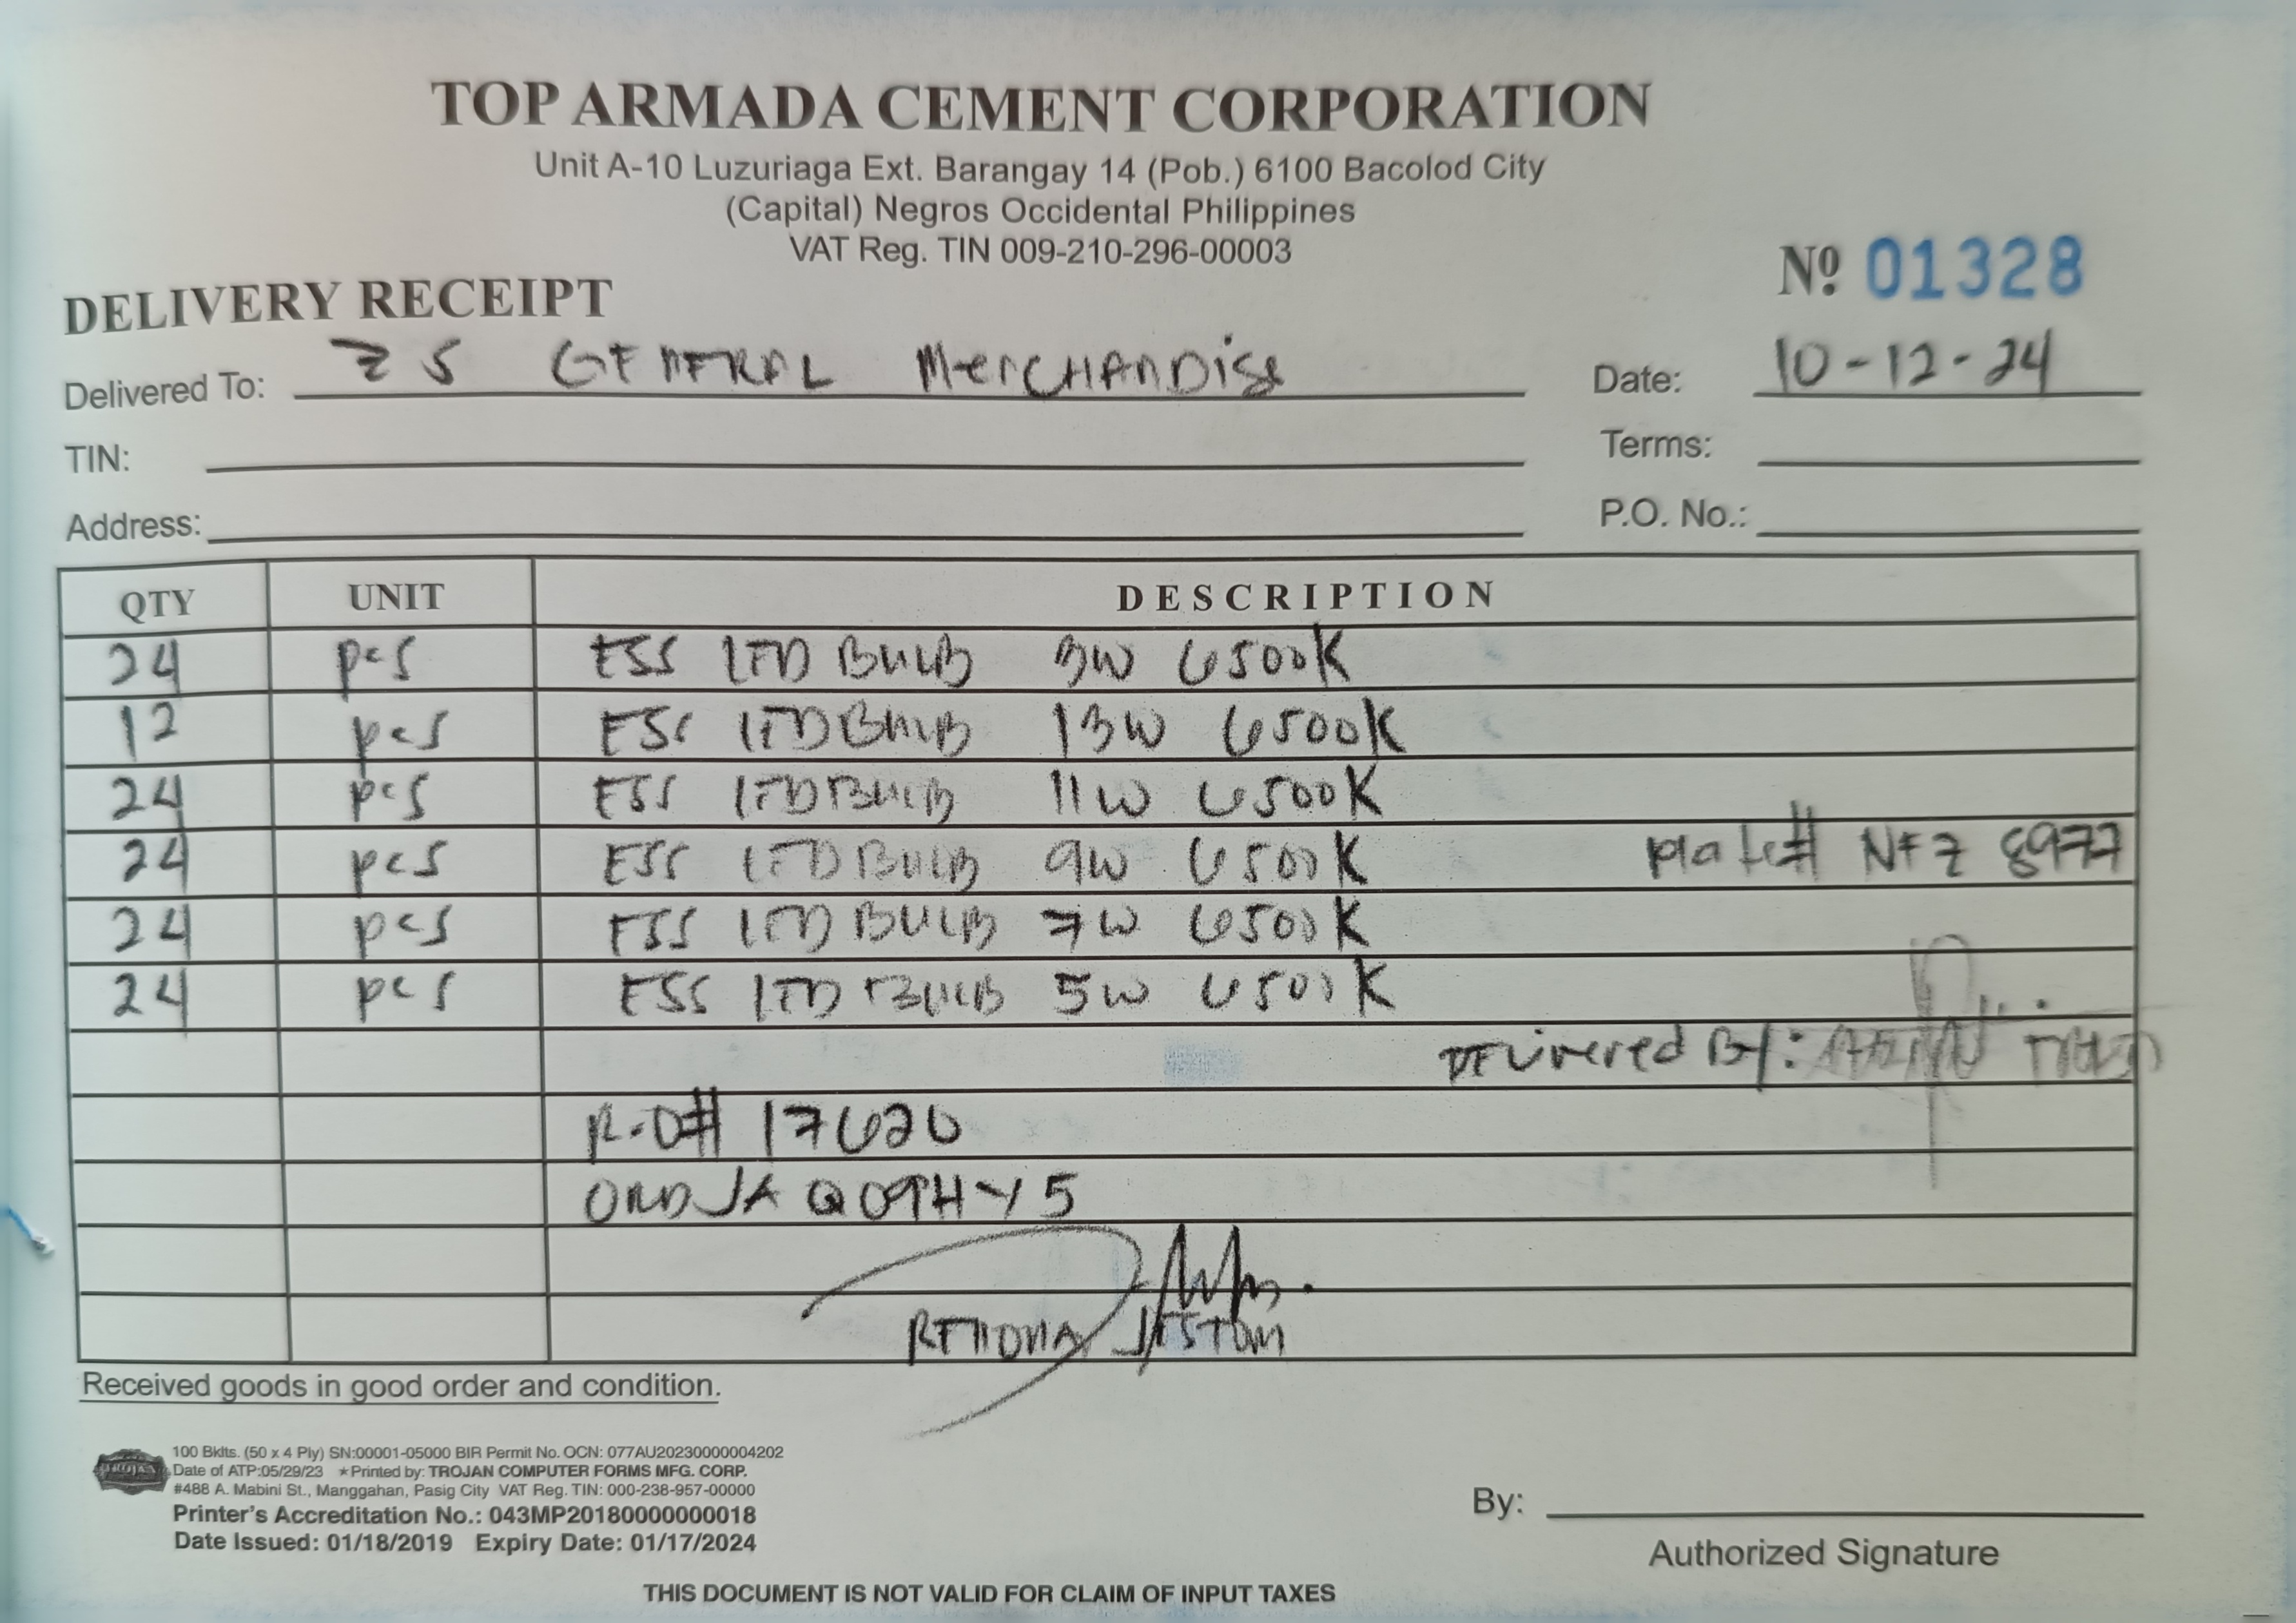 TOP ARMADA CEMENT CORPORATION
Unit A-10 Luzuriaga Ext. Barangay 14 (Pob.) 6100 Bacolod City
(Capital) Negros Occidental Philippines
VAT Reg. TIN 009-210-296-00003
Nº 01328
DELIVERY RECEIPT
Delivered To: ZS GENERAL MERCHANDISE
Date: 10-12-24
TIN:
Terms:
Address:
P.O. No.:
QTY UNIT DESCRIPTION
24 pcs ESS LED BULB 3W 6500K
12 pcs ESS LED BULB 13W 6500K
24 pcs ESS LED BULB 11W 6500K
24 pcs ESS LED BULB 9W 6500K Plate# NFZ 8977
24 pcs ESS LED BULB 7W 6500K
24 pcs ESS LED BULB 5W 6500K
DELivered By:
R.O# 17620
Received goods in good order and condition.
100 Bklts. (50 x 4 Ply) SN:00001-05000 BIR Permit No. OCN: 077AU20230000004202
Date of ATP:05/29/23 ★Printed by: TROJAN COMPUTER FORMS MFG. CORP.
#488 A. Mabini St., Manggahan, Pasig City VAT Reg. TIN: 000-238-957-00000
Printer's Accreditation No.: 043MP20180000000018
Date Issued: 01/18/2019 Expiry Date: 01/17/2024
By:
Authorized Signature
THIS DOCUMENT IS NOT VALID FOR CLAIM OF INPUT TAXES